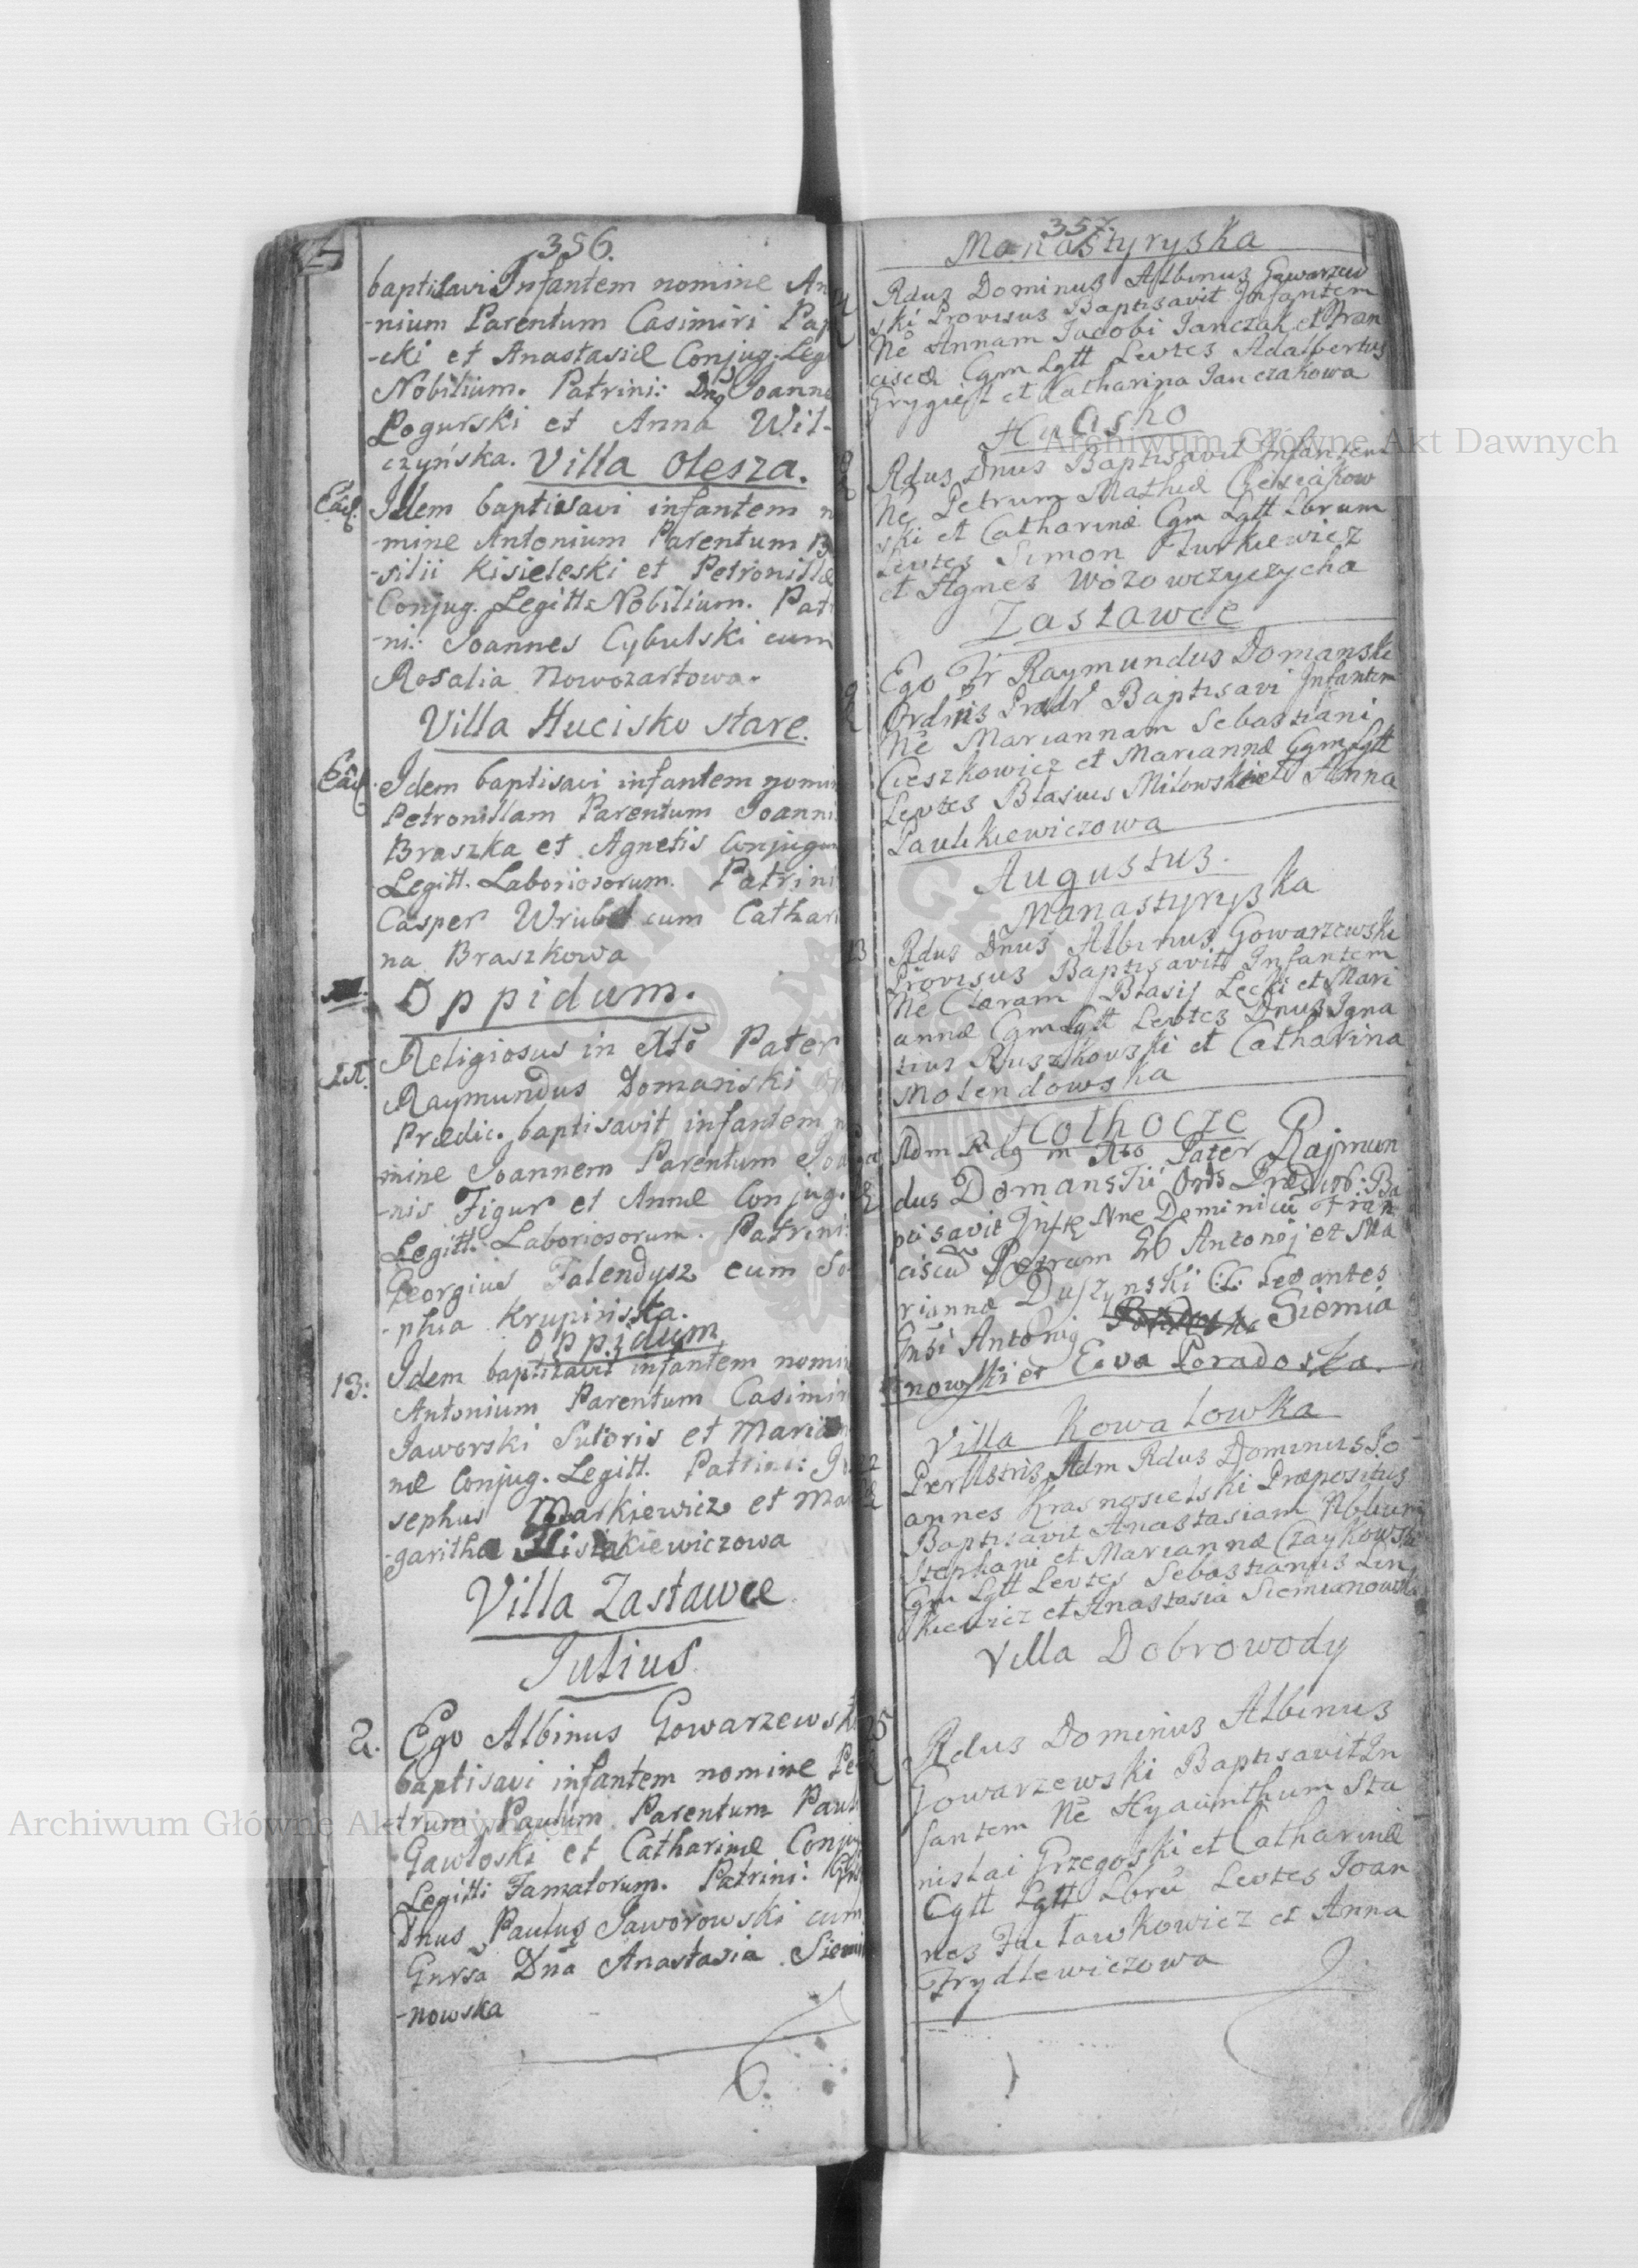 356.
baptisavi Infantem nomine An
-nium Parentum Casimiri Pap
-cki et Anastasiæ Conjug. Leg
Nobilium. Patrini: Dnq Joanne
Pogurski et Anna Wil-
czyńska. Villa Olesza.
Ead. Idem baptisavi infantem n
-mine Antonium Parentum B
-silii Kisieleski et Petronillæ
Conjug. Legitt: Nobilium. Patr
-ni: Joannes Cybulski cum
Rosalia Nowozartowa.
Villa Hucisko stare.
Ead. Idem baptisavi infantem nomin
Petronillam Parentum Joanni
Braszka et Agnetis Conjugu
Legitt. Laboriosorum. Patrini
Casper Wrubel cum Cathari
na Braszkowa
Oppidum.
Religiosus in Xto Pater
Raymundus Domański
Prædic. baptisavit infantem n
mine Joannem Parentum Joa
-nis Figur et Annæ Conjug.
Legitt. Laboriosorum. Patrini:
Georgius Talendysz cum So-
-phia Krupińska.
Oppidum
13: Idem baptisavit infantem nomin
Antonium Parentum Casimir
Jaworski Sutoris et Marian
næ Conjug. Legitt. Patrini: Jo
sephus Markiewicz et Mar
-garitha Misiakiewiczowa
Villa Zastawce
Julius
2. Ego Albinus Gowarzewski
baptisavi infantem nomine Pe
-trum, Paulum Parentum Pauli
Gawłoski et Catharinæ Conjug
Legitti Famatorum. Patrini: Gns
Dnus Paulus Jaworowski cum
Gnrsa Dna Anastasia Siemia
-nowska
357.
Manastyryska
Rdus Dominus Albinus Gawarzew
ski Provisus Baptisavit Infantem
Ne Annam Jacobi Janczak et Fran
ciscæ Cgm Lgtt Levtes Adalbertus
Grygiel et Katharina Janczakowa
Rdus Dnus Baptisavit Infantem
Ne Petrum Mathiæ Ciesiakow
ski et Catharinæ Cgm Lgtt Lbrum
Levtes Simon Żurkiewicz
et Agnes Wozowczyczycha
Zastawce
Ego Fr Raymundus Domanski
Ordnis Prædr Baptisavi Infantem
Ne Mariannam Sebastiani
Cieszkowicz et Mariannæ Cgm Lgtt
Levtes Blasius Milowski et Anna
Paulikiewiczowa
Augustus.
Manastyryska
13 Rdus Dnus Albinus Gowarzewski
Provisus Baptisavit Infantem
Ne Claram Blasij Lecki et Mari
annæ Cgm Lgtt Levtes Dnus Igna
tius Ruszkowski et Catharina
Molendowska
Adm Rdg in Xto Pater Rajmun
dus Domanski Ords Præd: Ba
ptisavit Infte Nne Dominicu Fran
ciscu Petrum Antonij et Ma
riannæ Duszynski C:L: Levantes
Gnsi Antonig Siemia
nowski et Eva Poradoska.
Villa Kowalowka
Perillstris Adm Rdus Dominus Jo
annes Krasnosielski Præpositus
Baptisavit Anastasiam Nblium
Stephani et Mariannæ Czaykowski
Cgm Lgtt Levtes Sebastianus Lin
kiewicz et Anastasia Siemianowska
Villa Dobrowody
25 Rdus Dominus Albinus
Gowarzewski Baptisavit In
fantem Ne Hyacinthum Sta
nislai Grzegoski et Catharinæ
Cgtt Lgtt Lbru Levtes Joan
nes et Anna
Frydlewiczowa
Archiwum Główne Akt Dawnych
Archiwum Główne Akt Dawnych